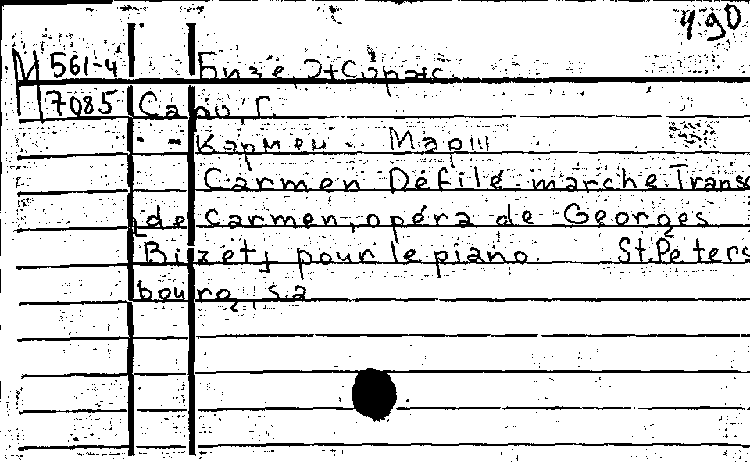 4.90
М 561-4 Бизе,
7085 Сапо, Г.
- - Кармен. Марш
Carmen Défilé-marche. Transc
[de Carmen, opéra de Georges
Bizet] pour le piano. St. Peters
bourg, s.a